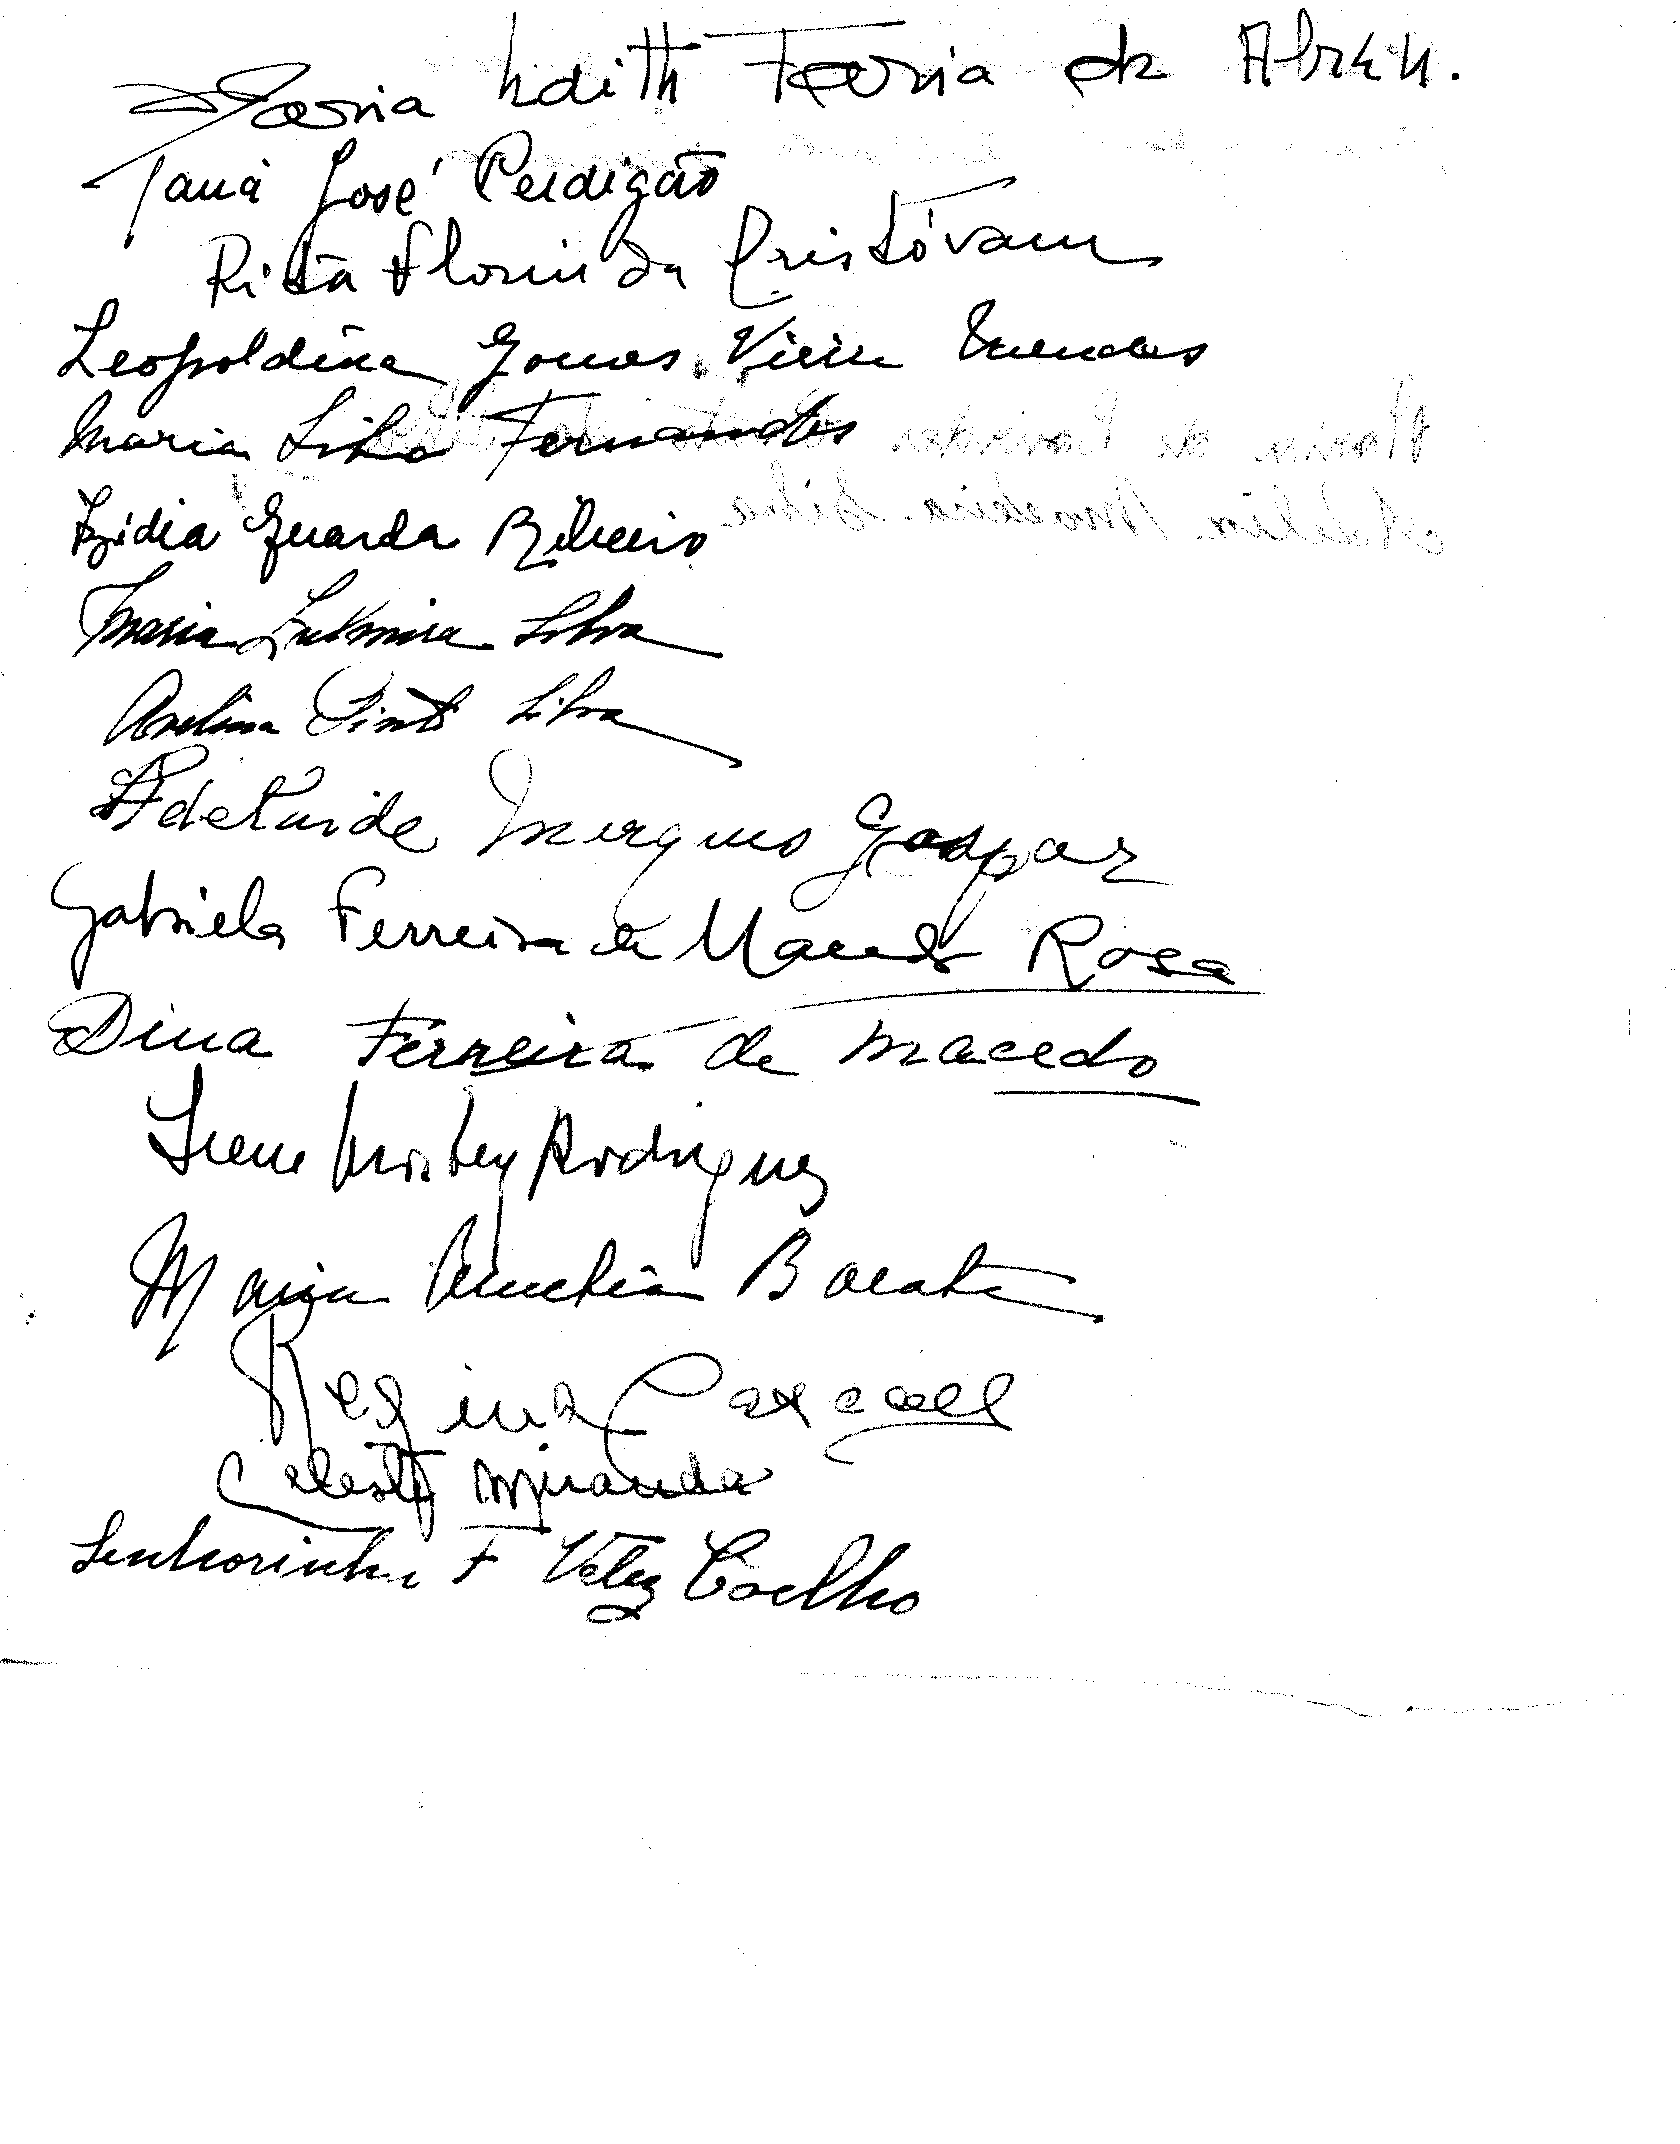 Maria Edith Faria de Abreu.
José Perdigão
Rita Florinda Cristóvam
Leopoldina Gomes Vieira Mendes
Maria Lilia Fernandes
Guarda Ribeiro
Maria Silva
Avelina Pinto Silva
Adelaide Marques Gaspar
Gabriela Ferreira de Macedo Rosa
Dina Ferreira de Macedo
Irene Rodrigues
Maria Barata
Regina
Celeste Miranda
Senhorinha F Velez Coelho